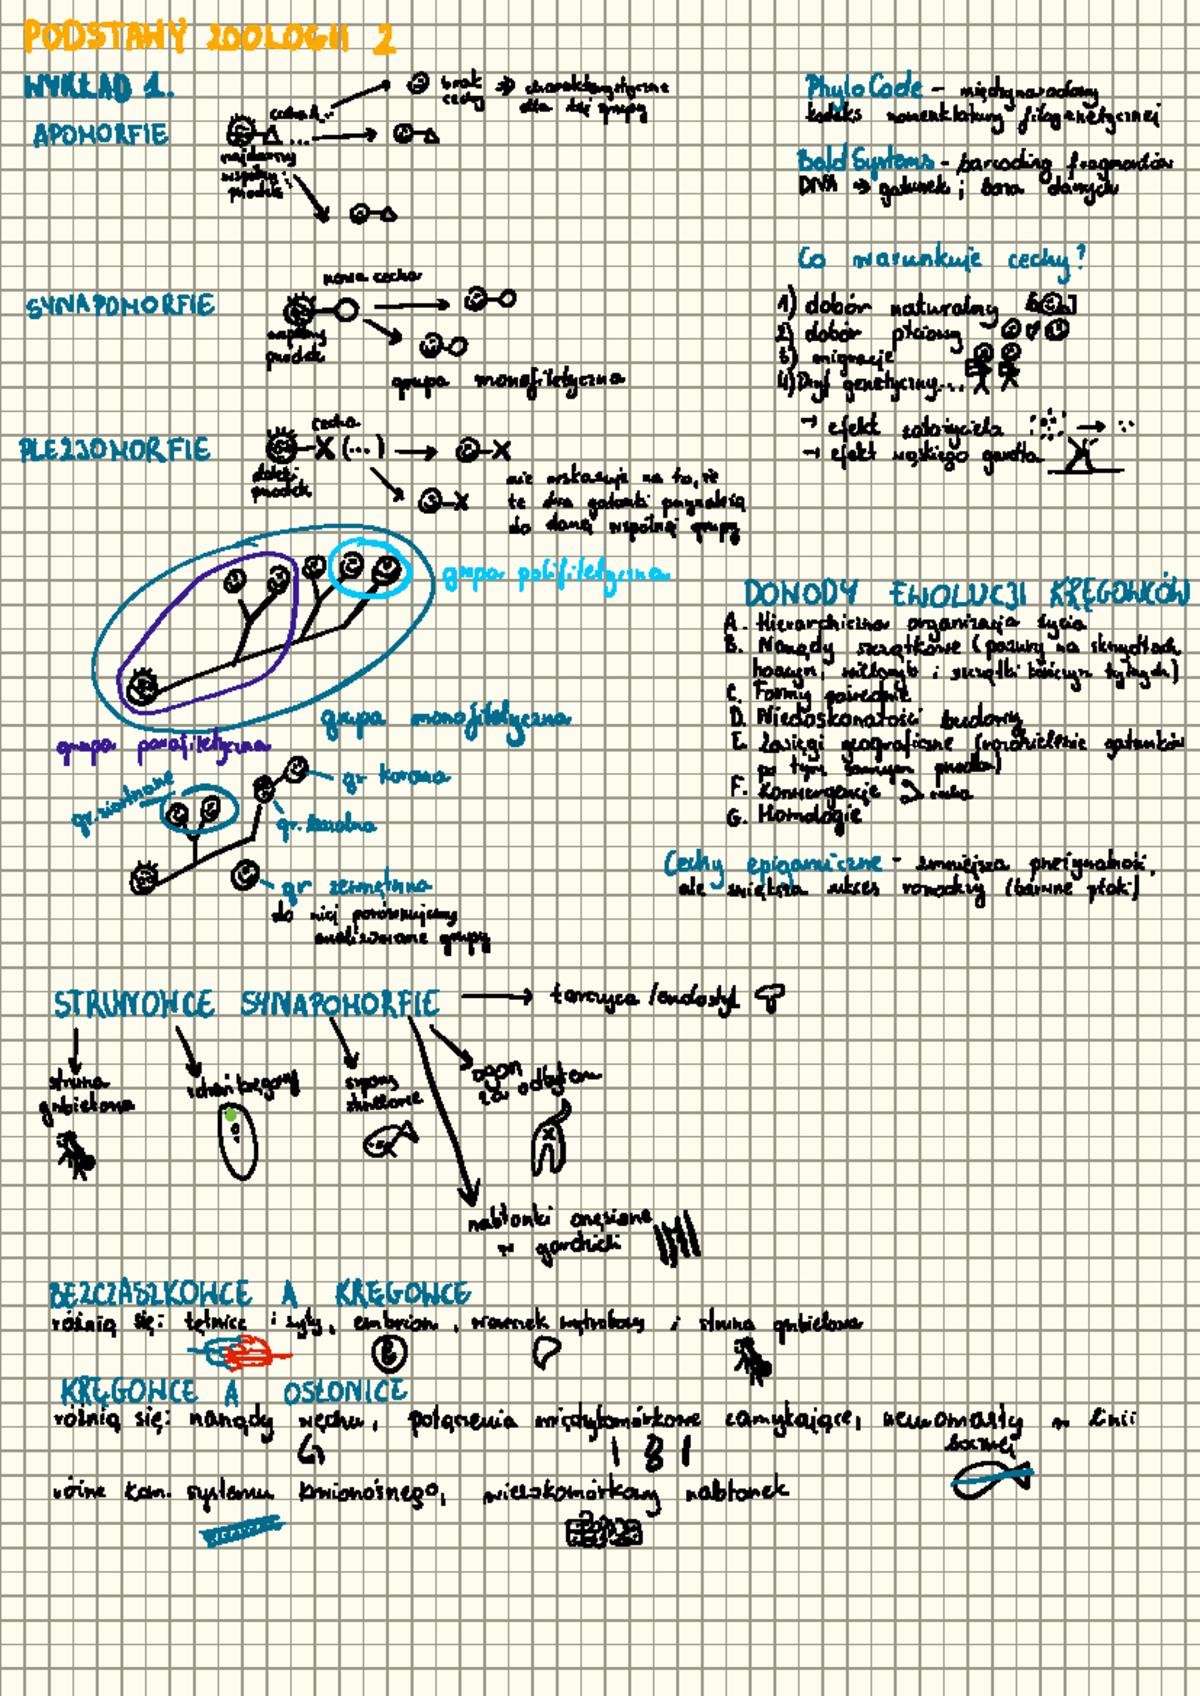 PODSTAWY ZOOLOGII 2
WYKŁAD 1.
APOMORFIE
cecha A
brak cechy → charakterystyczne
dla tej grupy
najdawny
wspólny
przodek
SYNAPOMORFIE
nowa cecha
wspólny
przodek
grupa monofiletyczna
PLEZJOMORFIE
cecha
X (...) → X
daleki
przodek
X
nie wskazuje na to, że
te dwa gatunki przynależą
do danej wspólnej grupy
grupa polifiletyczna
grupa monofiletyczna
grupa parafiletyczna
gr. siostrzane
gr korona
gr. bazalna
gr zewnętrzna
do niej porównujemy
analizowane grupy
PhyloCode - międzynarodowy
kodeks nomenklatury filogenetycznej
Bold Systems - barcoding fragmentów
DNA → gatunek; baza danych
Co warunkuje cechy?
1) dobór naturalny
2) dobór płciowy
3) migracje
4) Dryf genetyczny...
→ efekt założyciela
→ efekt wąskiego gardła
DOWODY EWOLUCJI KRĘGOWCÓW
A. Hierarchiczna organizacja życia
B. Narządy szczątkowe (pazury na skrzydłach
hoacyn, i szczątki kończyn tylnych)
C. Formy pośrednie
D. Niedoskonałości budowy
E. Zasięgi geograficzne (rozdzielenie gatunków
po tym samym przodku)
F. Konwergencje
G. Homologie
Cechy epigamiczne - zmniejsza przeżywalność,
ale zwiększa sukces rozrodczy (barwne ptaki)
STRUNOWCE SYNAPOMORFIE → tarczyca /endostyl
struna
grzbietowa
rdzeń kręgowy
szpary
skrzelowe
ogon
za odbytem
nabłonki orzęsione
w gardzieli
BEZCZASZKOWCE A KRĘGOWCE
różnią się: tętnice i żyły, embrion, woreczek wątrobowy i struna grzbietowa
KRĘGOWCE A OSŁONICE
różnią się: narządy węchu, połączenia międzykomórkowe zamykające, neuromasty w linii
bocznej
różne kom. systemu krwionośnego, wielokomórkowy nabłonek